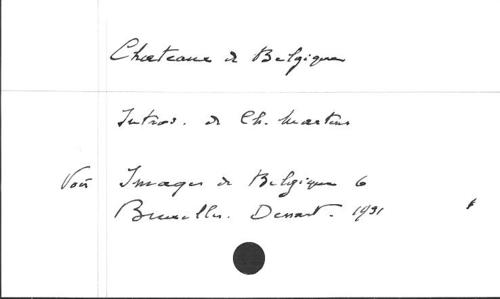 Chateaux de Belgique
Introd. de Ch. Martens
Voir Images de Belgique 6
Bruxelles. Dessart. 1951